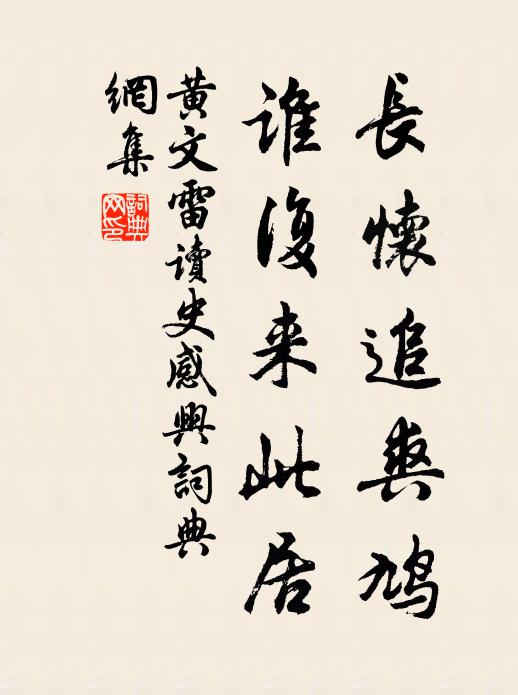 長懷追爽鳩
誰復来此居
黃文雷讀史感興詞典
網集
詞典网印